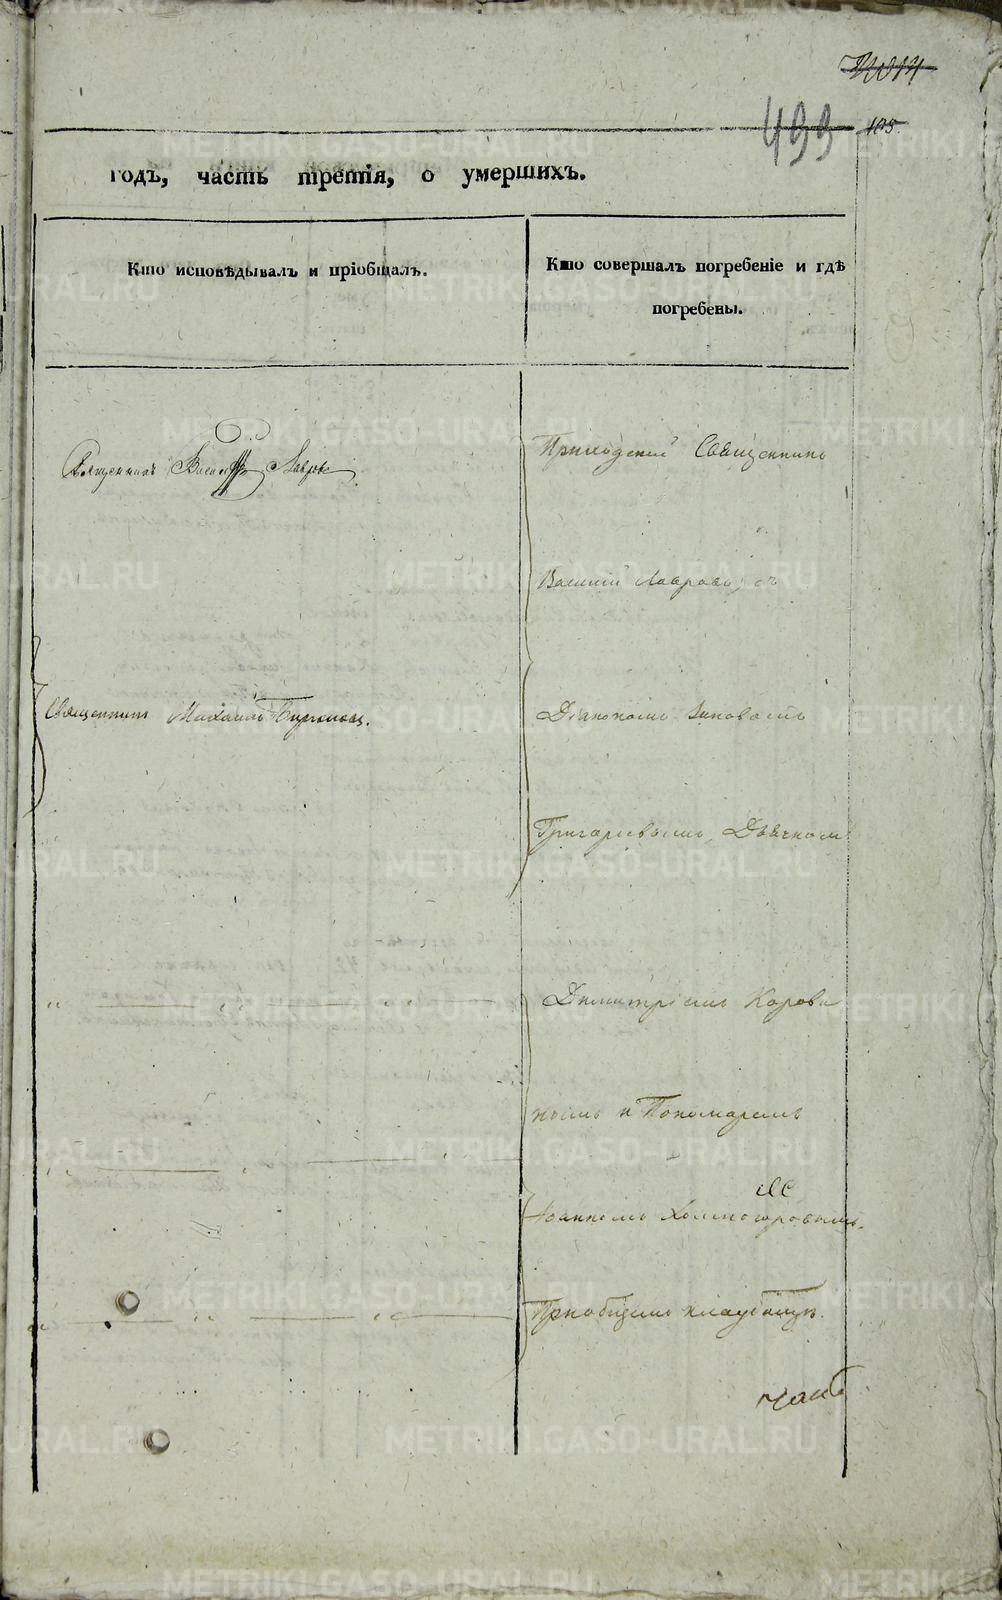 499
105.
годъ, часть третія, о умершихъ.
Кто исповѣдывалъ и пріобщалъ.
Кто совершалъ погребеніе и гдѣ
погребены.
Священникъ Василій Лавровъ
Приходской Священникъ
Василій Лавровъ, съ
Священникъ Михаилъ
Діакономъ
Григорьевымъ, Дьячкомъ
Димитріемъ Корови
нымъ и Пономаремъ
Іоанномъ Холмогоровымъ.
На общемъ кладбищѣ.
METRIKI.GASO-URAL.RU